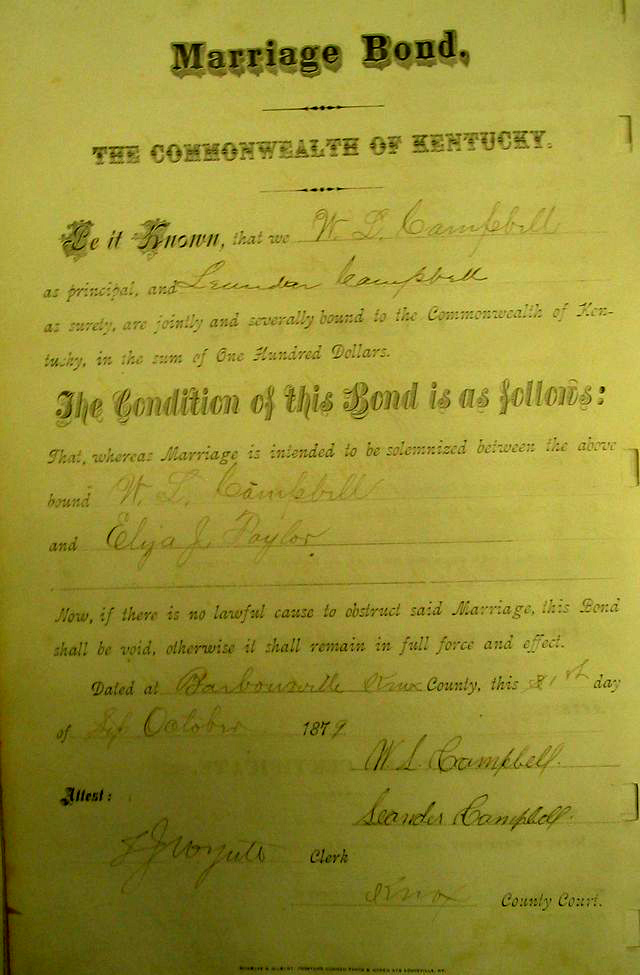 Marriage Bond.
THE COMMONWEALTH OF KENTUCKY.
Be it Known, that we W. L. Campbell
as principal, and Leander Campbell
as surety, are jointly and severally bound to the Commonwealth of Ken-
tucky, in the sum of One Hundred Dollars.
The Condition of this Bond is as follows:
That, whereas Marriage is intended to be solemnized between the above
bound W. L. Campbell
and Eliza J. Taylor
Now, if there is no lawful cause to obstruct said Marriage, this Bond
shall be void, otherwise it shall remain in full force and effect.
Dated at Barbourville Knox County, this day
of October 1879
W. L. Campbell.
Attest:
Leander Campbell.
Clerk
Knox County Court.